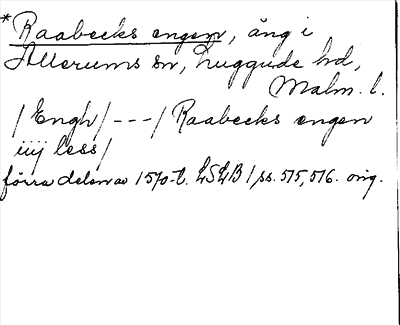 * Raabecks engen, äng i
Allerums sn, Luggude hd,
Malm. l.
/Engh/---/ Raabecks engen
iiij less/
förra delen av 1570-t. LSLB 1, ss. 515, 516. orig.